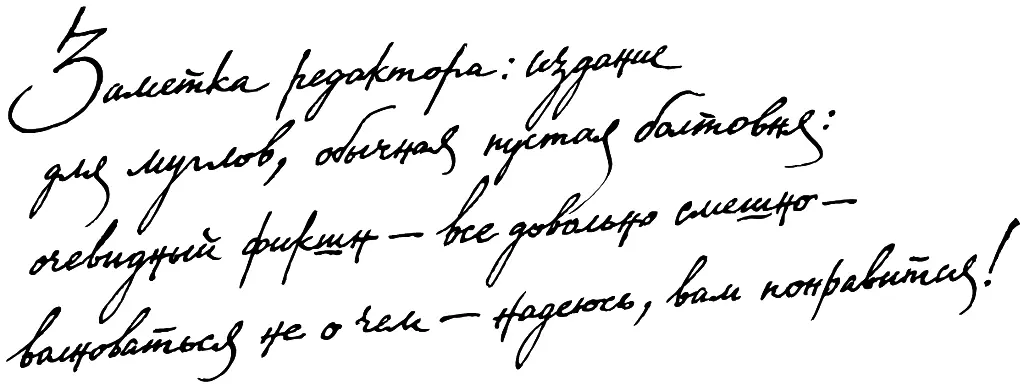 Заметка редактора: издание
для муглов, обычная пустая болтовня:
очевидный фикшн — все довольно смешно —
волноваться не о чем — надеюсь, вам понравится!